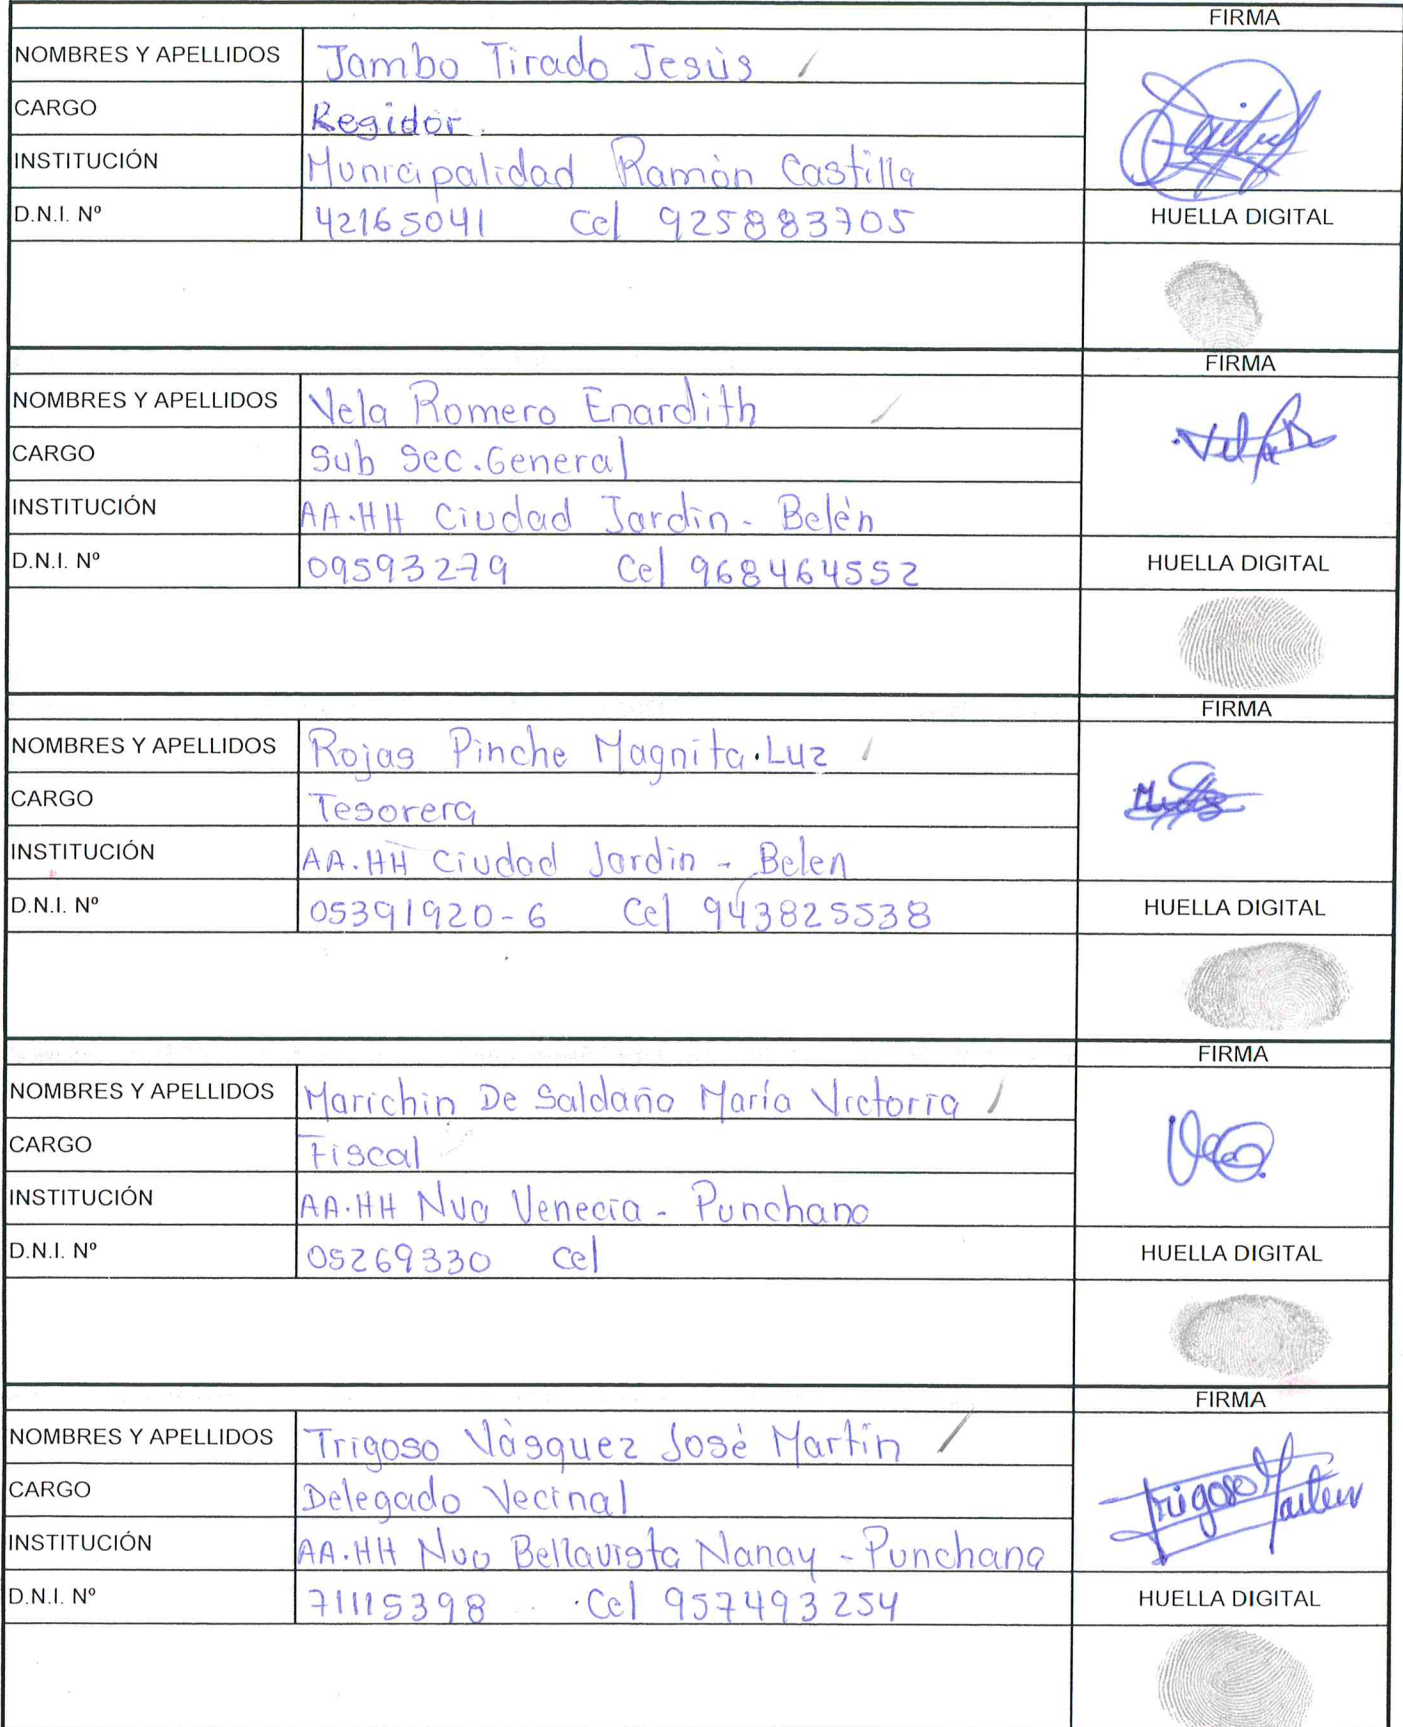 FIRMA
NOMBRES Y APELLIDOS Jambo Tirado Jesùs
CARGO Regidor.
INSTITUCIÓN Municipalidad Ramòn Castilla
D.N.I. Nº 42165041 Cel 925883705 HUELLA DIGITAL
FIRMA
NOMBRES Y APELLIDOS Vela Romero Enardith
CARGO Sub Sec.General
INSTITUCIÓN AA.HH Ciudad Jardin - Belèn
D.N.I. Nº 09593279 Cel 968464552 HUELLA DIGITAL
FIRMA
NOMBRES Y APELLIDOS Rojas Pinche Magnita.Luz
CARGO Tesorera
INSTITUCIÓN AA.HH Ciudad Jardin - Belen
D.N.I. Nº 05391920-6 Cel 943825538 HUELLA DIGITAL
FIRMA
NOMBRES Y APELLIDOS Marichin De Saldaña María Victoria
CARGO Fiscal
INSTITUCIÓN AA.HH Nva Venecia - Punchana
D.N.I. Nº 05269330 Cel HUELLA DIGITAL
FIRMA
NOMBRES Y APELLIDOS Trigoso Vàsquez Josè Martin
Trigoso Martin
CARGO Delegado Vecinal
INSTITUCIÓN AA.HH Nvo Bellavista Nanay - Punchana
D.N.I. Nº 71115398 Cel 957493254 HUELLA DIGITAL